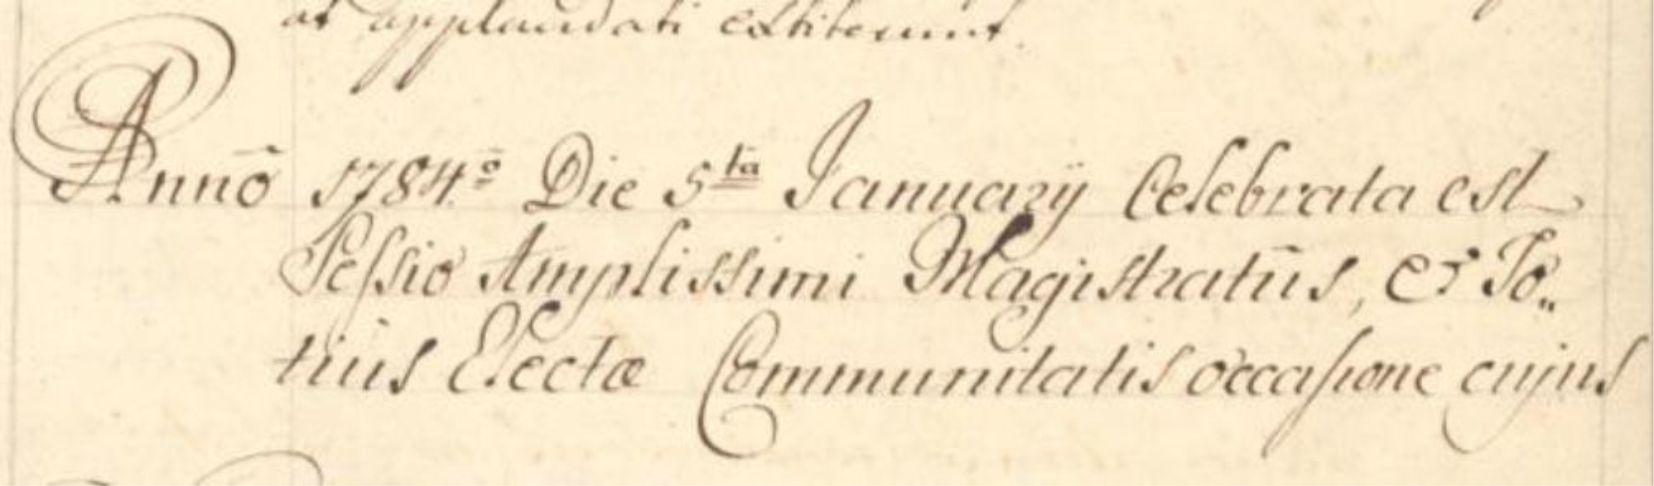 at applaudati extiterunt.
Annō 1784º Die 5ta Januarÿ Celebrata est
Sessio Amplissimi Magistratûs, et To„
tiûs Electæ Communitatis occasione cujus